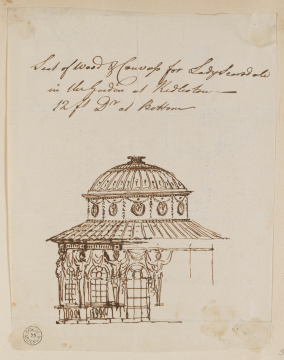 Seat of Wood & Canvass for Lady Scarsdale
in the Garden at Kedleston
12 ft Dr at Bottom